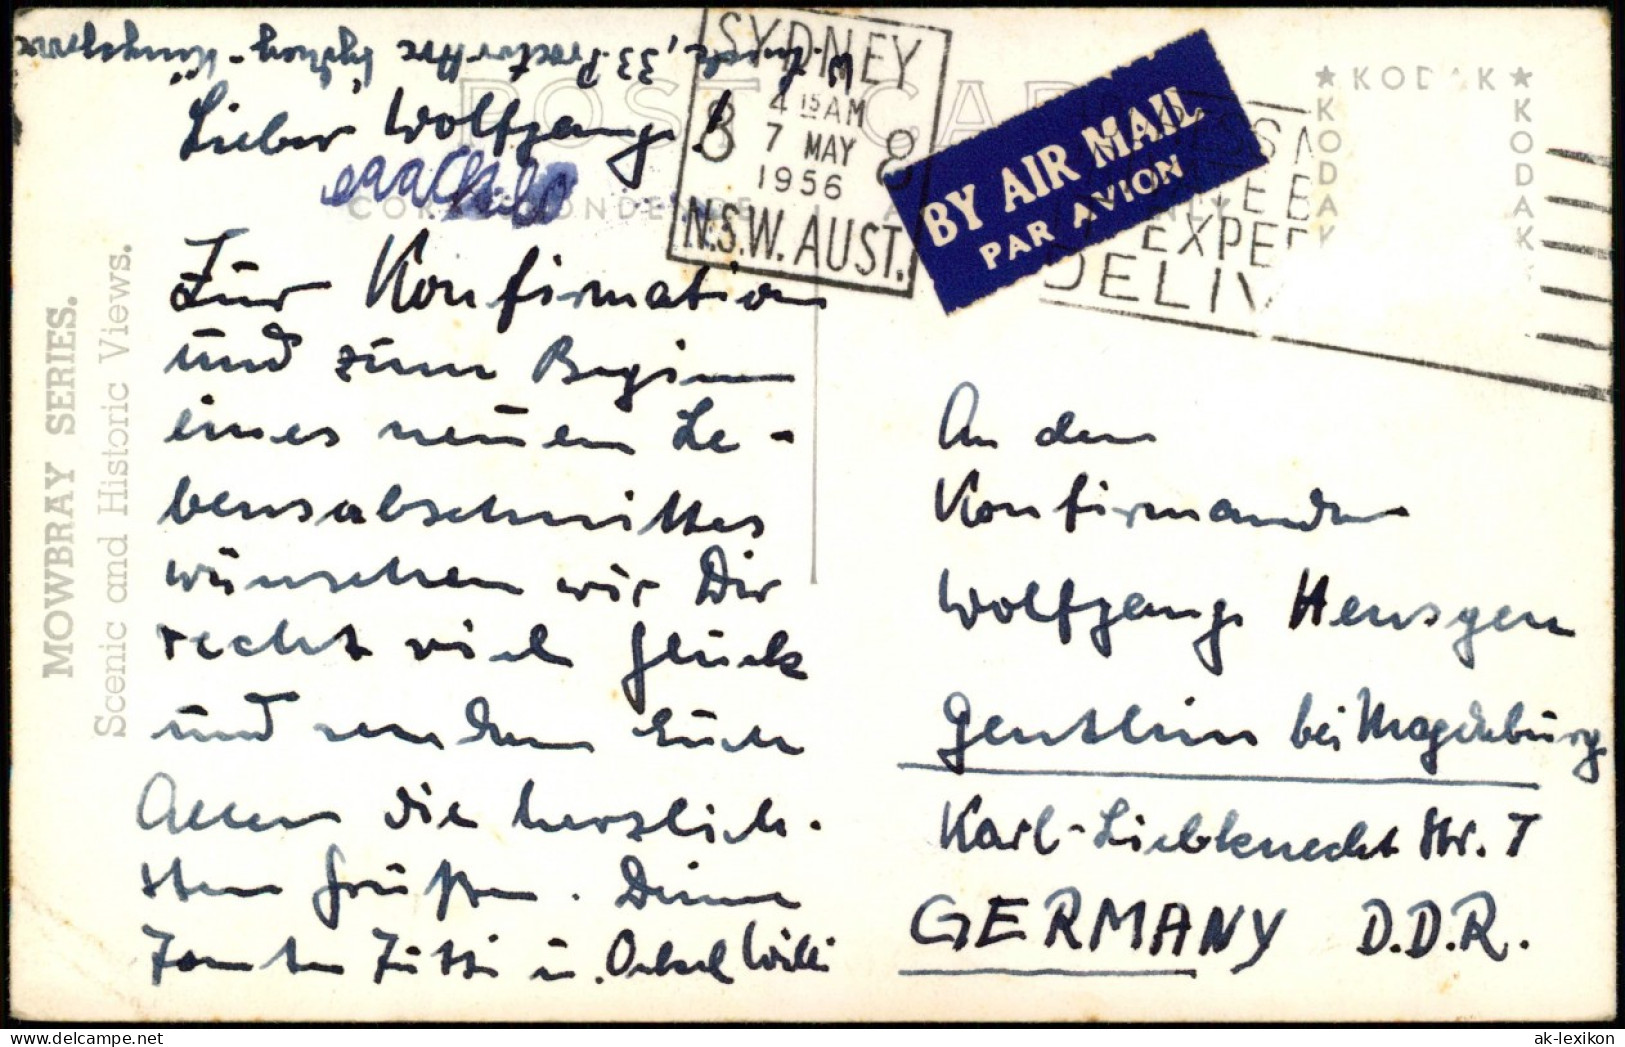 33 Proctor Ave Sydney - Kingsgrove
POST CARD
SYDNEY
4 15 AM
8 7 MAY 8
1956
N.S.W. AUST.
BY AIR MAIL
PAR AVION
EXPED
DELIV
★ KODAK ★
KODAK
KODAK
MOWBRAY SERIES.
Scenic and Historic Views.
CORRESPONDENCE
Lieber Wolfgang!
Zur Konfirmation
und zum Beginn
eines neuen Le-
bensabschnittes
wünschen wir Dir
recht viel Glück
und senden Euch
Allen die herzlich-
sten Grüße. Deine
Tante u. Onkel Willi
An den
Konfirmanden
Wolfgang Hensgen
Genthin bei Magdeburg
Karl-Liebknecht Str. 7
GERMANY D.D.R.
ak-lexikon